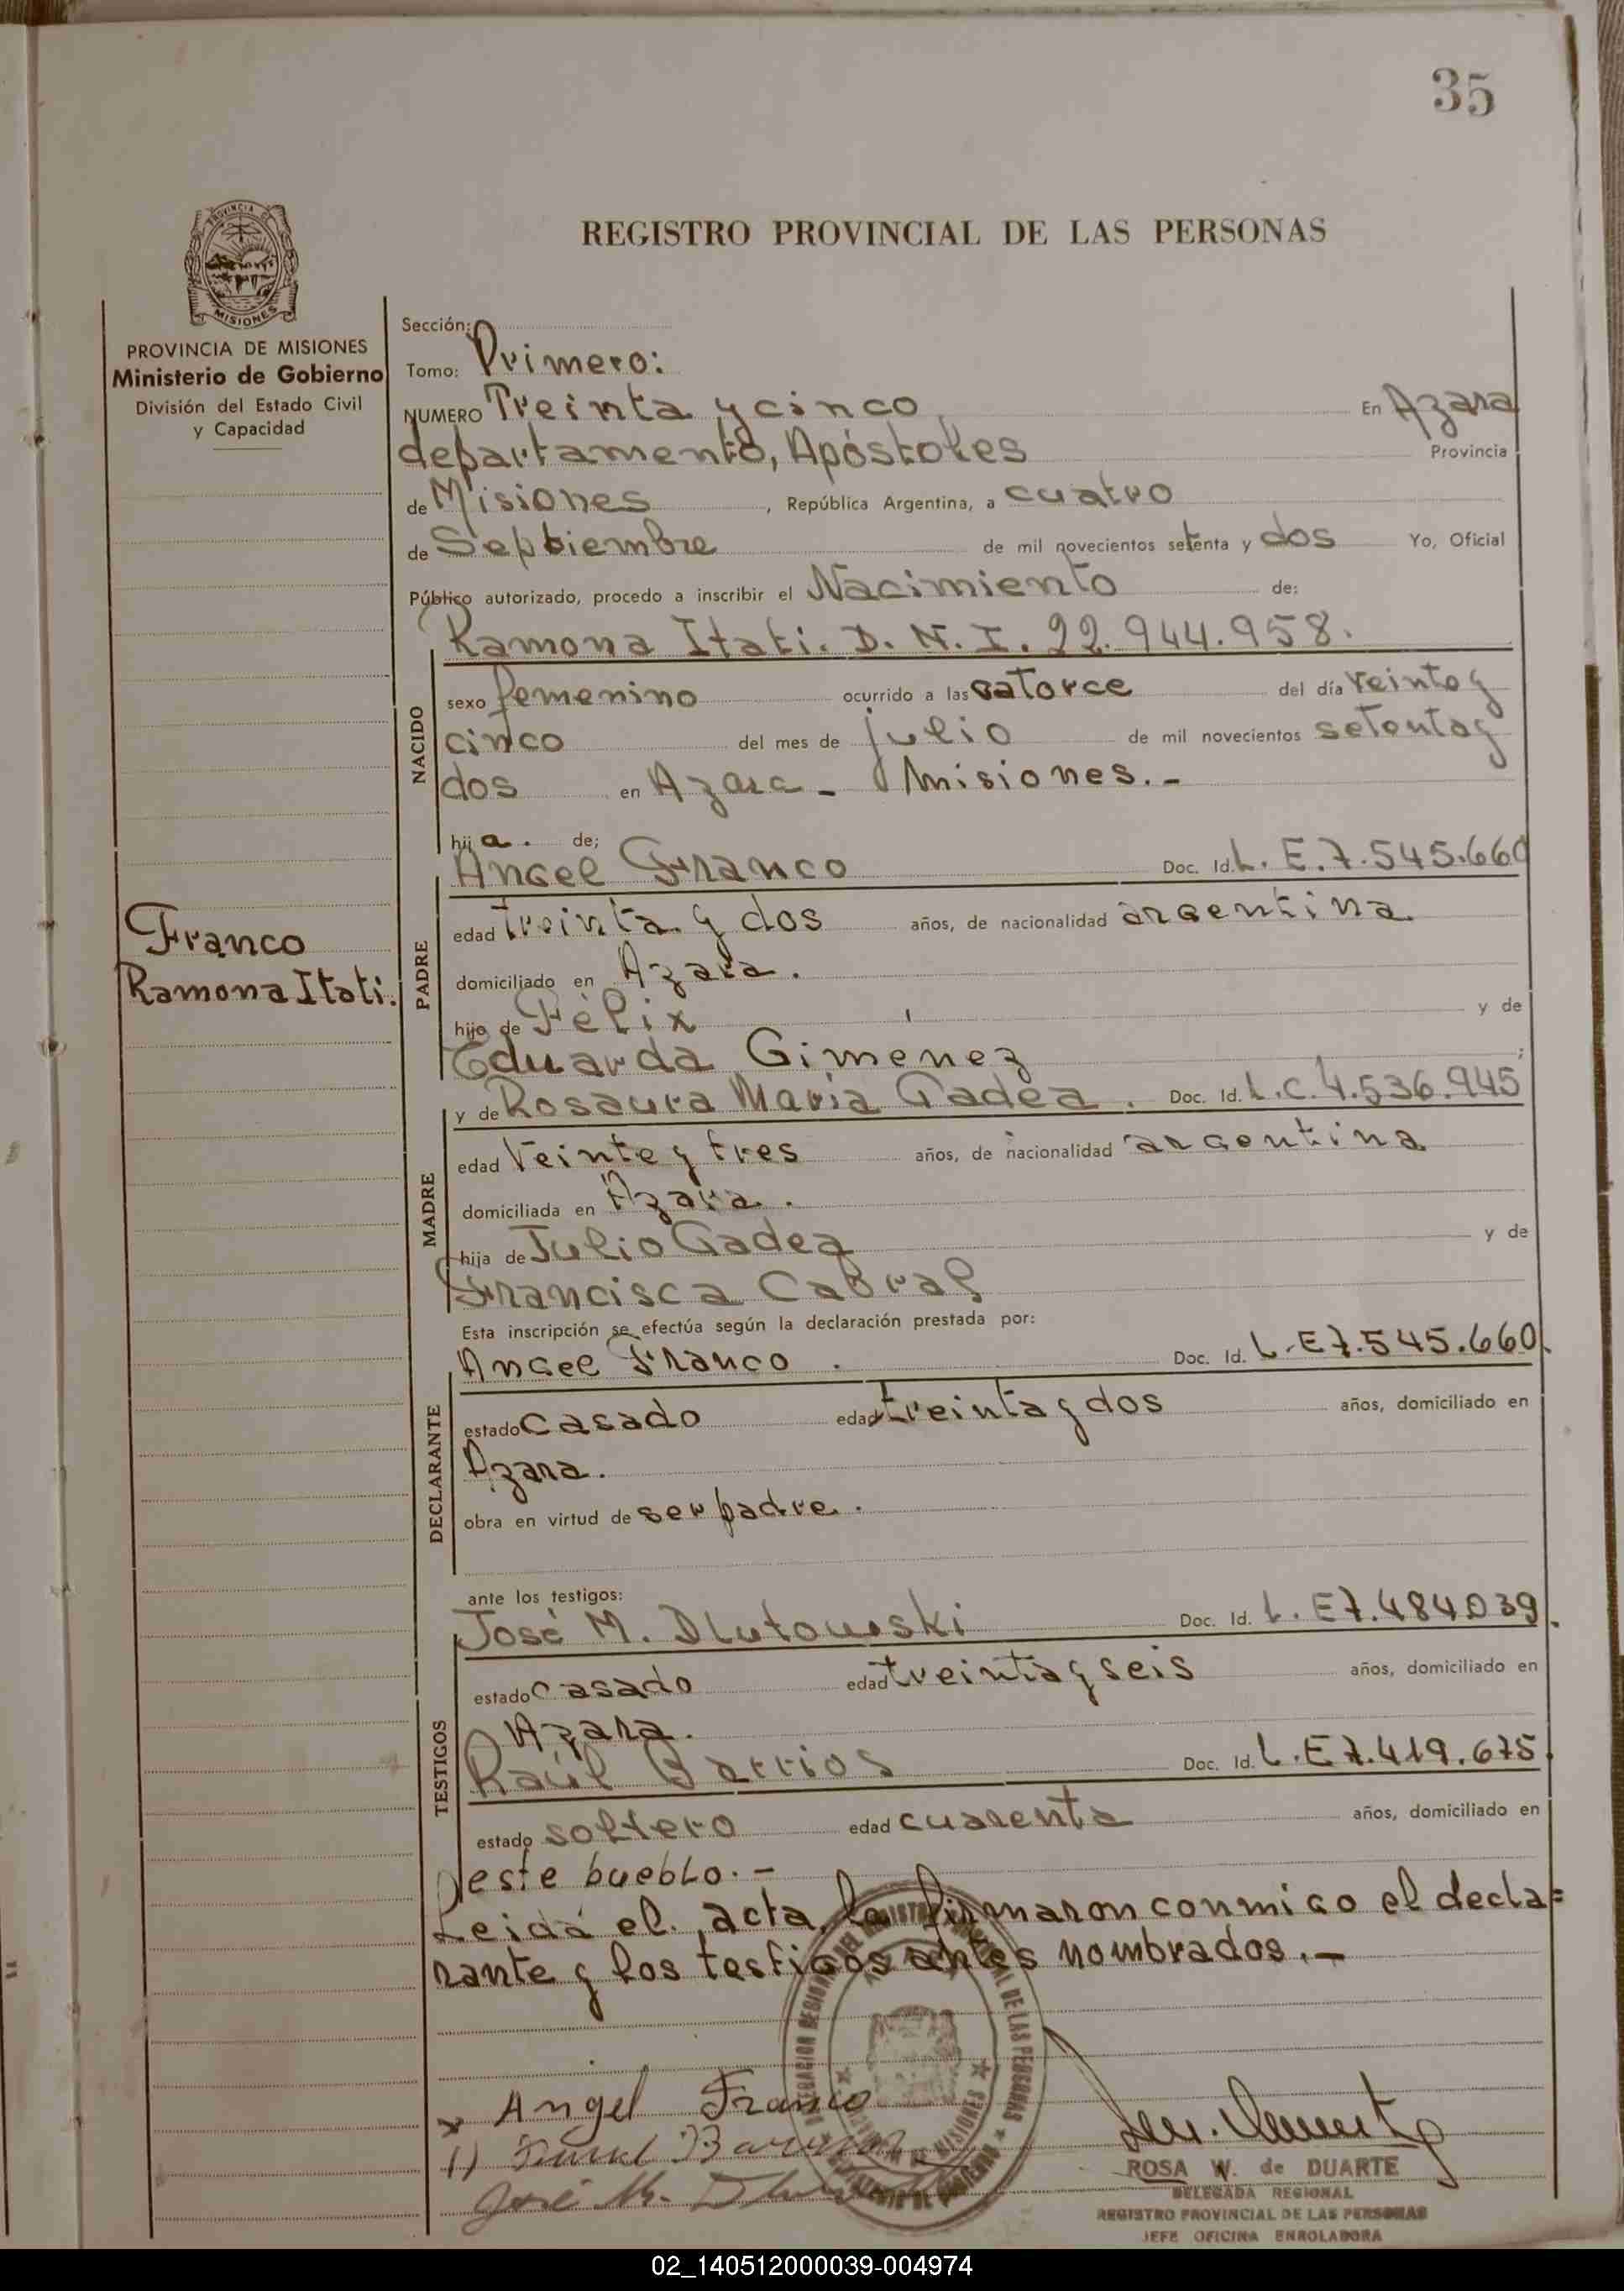 35
PROVINCIA DE
MISIONES
REGISTRO PROVINCIAL DE LAS PERSONAS
PROVINCIA DE MISIONES
Ministerio de Gobierno
División del Estado Civil
y Capacidad
Sección:
Tomo: Primero:
NUMERO Treinta y cinco En Azara
departamento, Apóstoles Provincia
de Misiones, República Argentina, a cuatro
de Septiembre de mil novecientos setenta y dos Yo, Oficial
Público autorizado, procedo a inscribir el Nacimiento de:
Ramona Itati. D. N. I. 22.944.958.
NACIDO
sexo femenino ocurrido a las catorce del día veinte y
cinco del mes de julio de mil novecientos setenta y
dos en Azara - Misiones.-
hija. de;
Angel Franco Doc. Id. L. E. 7.545.660
PADRE
edad treinta y dos años, de nacionalidad argentina
domiciliado en Azara.
hijo de Félix y de
Eduarda Gimenez;
Franco
Ramona Itati.
y de Rosaura Maria Gadea. Doc. Id. L.C. 4.536.945
MADRE
edad veinte y tres años, de nacionalidad argentina
domiciliada en Azara.
hija de Julio Gadea y de
Francisca Cabral
Esta inscripción se efectúa según la declaración prestada por:
Angel Franco. Doc. Id. L.E 7.545.660.
DECLARANTE
estado casado edad treinta y dos años, domiciliado en
Azara.
obra en virtud de ser padre.
ante los testigos:
José M. Dlutowski Doc. Id. L. E 7.484.039.
TESTIGOS
estado casado edad treinta y seis años, domiciliado en
Azara.
Raúl Barrios Doc. Id. L. E 7.419.675.
estado soltero edad cuarenta años, domiciliado en
este pueblo.-
Leida el acta, la firmaron conmigo el decla=
rante y los testigos antes nombrados.-
DE LAS PERSONAS
MISIONES
Angel Franco
José M.
ROSA W. de DUARTE
DELEGADA REGIONAL
REGISTRO PROVINCIAL DE LAS PERSONAS
JEFE OFICINA ENROLADORA
02_140512000039-004974